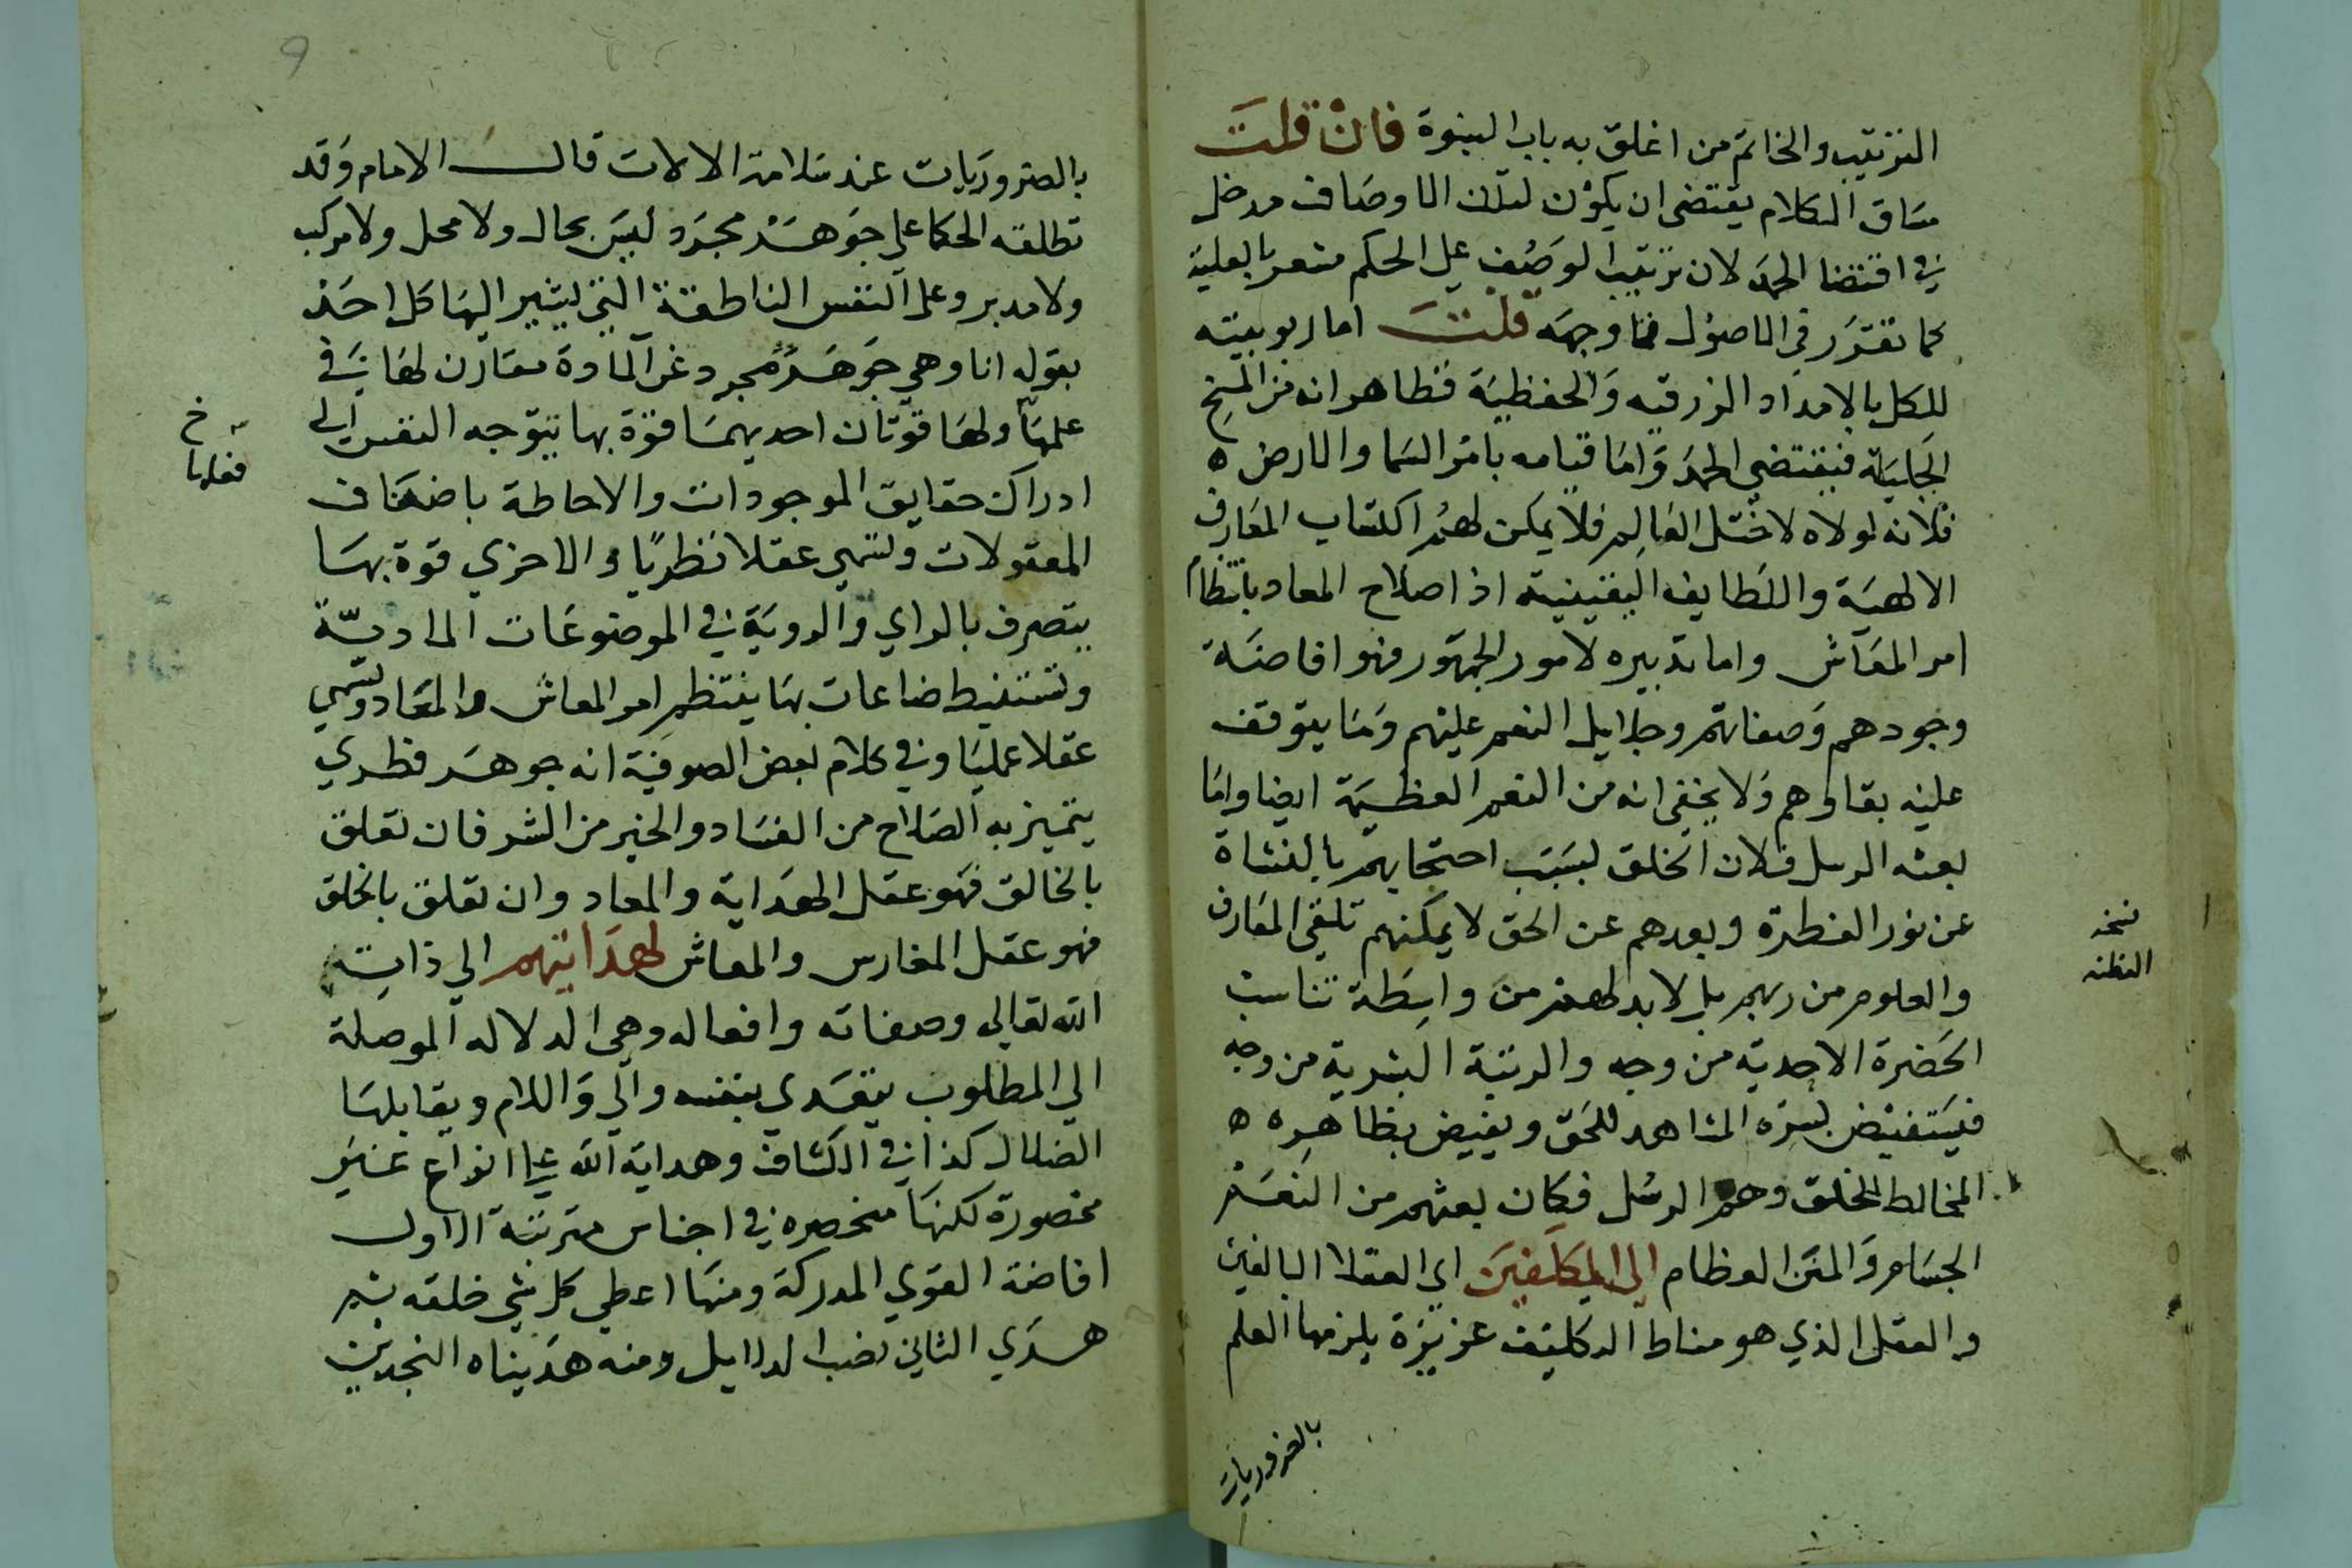 الترتيب والخاتم من اغلق به باب النبوة فان قلت
مساق الكلام يقتضي ان يكون لتلك الاوصاف مدخل
في اقتضا الحمد لان ترتيب الوصف على الحكم مشعر بالعلية
كما تقرر في الاصول فما وجهه قلت اما ربوبيته
للكل بالامداد الرزقيه والحفظية فظاهر انه من المنح
الجليلة فيقتضي الحمد واما قيامه بامر السما والارض ه
فلانه لولاه لاختل العالم فلا يمكن لهم اكتساب المعارف
الالهية واللطايف اليقينية اذ اصلاح المعاد بانتظام
امر المعاش واما تدبيره لامور الجمهور فهو افاضة
وجودهم وصفاتهم وجلايل النعم عليهم وما يتوقف
عليه بقاوهم ولا يخفى انه من النعم العظيمة ايضا واما
بعثه الرسل فلان الخلق بسبب احتجابهم بالنشاة
عن نور الفطرة وبعدهم عن الحق لا يمكنهم تلقي المعارف
والعلوم من ربهم بل لابد لهم من واسطة تناسب
الحضرة الاحدية من وجه والرتبة البشرية من وجه
فيستفيض بسره المشاهد للحق ويفيض بظاهره ه
المخالط للخلق وهم الرسل فكان بعثهم من النعم
الجسام والمنن العظام الى المكلفين اي العقلا البالغين
والعقل الذي هو مناط التكليف غريزة يلزمها العلم
بالضروريات
نسخه
الفطنه
9
بالضروريات عند سلامة الالات قال الامام وقد
تطلقه الحكما على جوهر مجرد ليس بحال ولا محل ولا مركب
ولا مدبر وعلى النفس الناطقة التي يشير اليها كل احد
بقوله انا وهي جوهر مجرد عن المادة مقارن لها في
علمها ولها قوتان احديهما قوة بها تتوجه النفس الى
ادراك حقايق الموجودات والاحاطة باصناف
المعقولات وتسمى عقلا نظريا والاخرى قوة بها
يتصرف بالراي والروية في الموضوعات المادية
وتستنبط صناعات بها ينتظم امر المعاش والمعاد وتسمى
عقلا عمليا وفي كلام بعض الصوفية انه جوهر فطري
يتميز به الصلاح من الفساد والخير من الشر فان تعلق
بالخالق فهو عقل الهداية والمعاد وان تعلق بالخلق
فهو عقل المغارس والمعاش لهدايتهم الى ذات
الله تعالى وصفاته وافعاله وهي الدلاله الموصلة
الى المطلوب يتعدى بنفسه والى واللام ويقابلها
الضلال كذا في الكشاف وهداية الله على انواع غير
محصورة لكنها منحصره في اجناس مترتبة الاول
افاضة القوى المدركة ومنها اعطى كل شي خلقه ثم
هدى الثاني نصب الدلايل ومنه هديناه النجدين
خ
فعلها